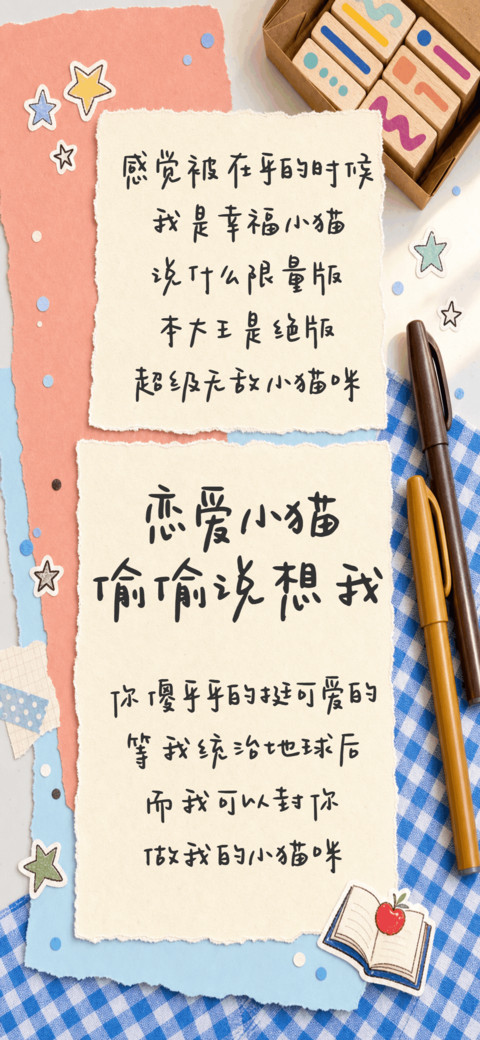 感觉被在乎的时候
我是幸福小猫
说什么限量版
本大王是绝版
超级无敌小猫咪
恋爱小猫
偷偷说想我
你傻乎乎的挺可爱的
等我统治地球后
而我可以封你
做我的小猫咪